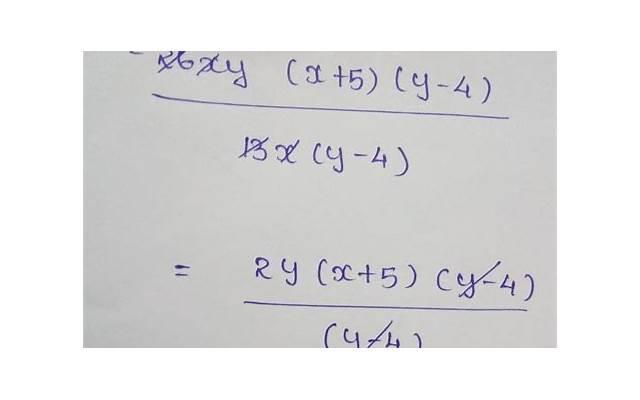 26xy (x+5) (y-4)
13x (y-4)
= 2y (x+5) (y-4)
(y-4)